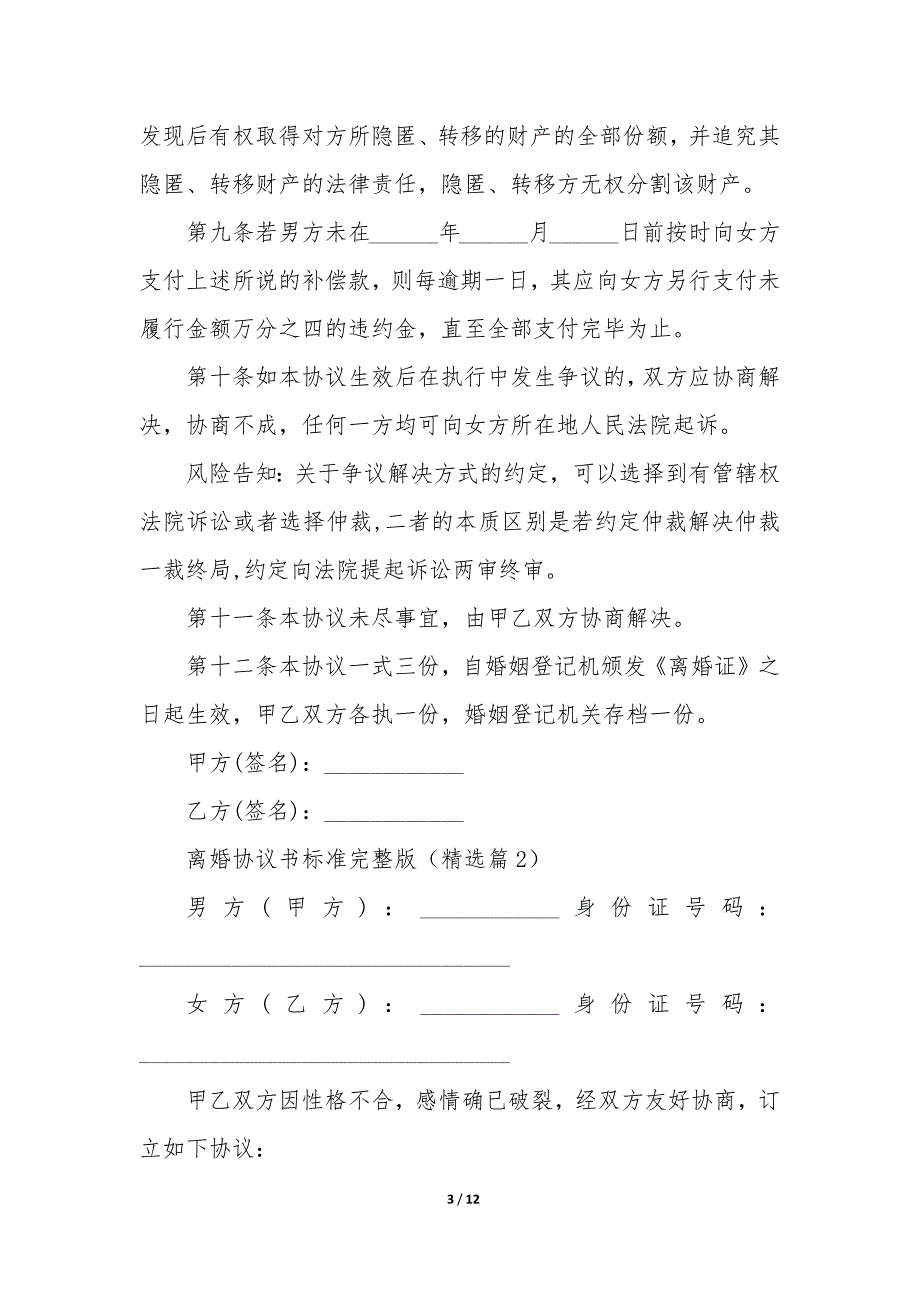 发现后有权取得对方所隐匿、转移的财产的全部份额，并追究其
隐匿、转移财产的法律责任，隐匿、转移方无权分割该财产。
第九条若男方未在______年______月______日前按时向女方
支付上述所说的补偿款，则每逾期一日，其应向女方另行支付未
履行金额万分之四的违约金，直至全部支付完毕为止。
第十条如本协议生效后在执行中发生争议的，双方应协商解
决，协商不成，任何一方均可向女方所在地人民法院起诉。
风险告知：关于争议解决方式的约定，可以选择到有管辖权
法院诉讼或者选择仲裁,二者的本质区别是若约定仲裁解决仲裁
一裁终局,约定向法院提起诉讼两审终审。
第十一条本协议未尽事宜，由甲乙双方协商解决。
第十二条本协议一式三份，自婚姻登记机颁发《离婚证》之
日起生效，甲乙双方各执一份，婚姻登记机关存档一份。
甲方(签名)：____________
乙方(签名)：____________
离婚协议书标准完整版（精选篇2）
男方(甲方)：____________身份证号码：
________________________________
女方(乙方)：____________身份证号码：
________________________________
甲乙双方因性格不合，感情确已破裂，经双方友好协商，订
立如下协议：
3 / 12